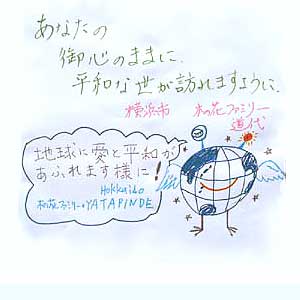 あなたの
御心のままに、
平和な世が訪れますように。
横浜市 木の花ファミリー
道代
地球に愛と平和が
あふれます様に!
Hokkaido
木の花ファミリーのYATAPINDE